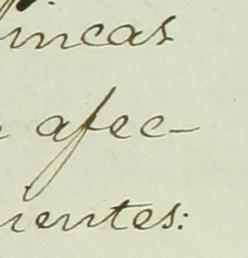 fincas
afec-
ientes: